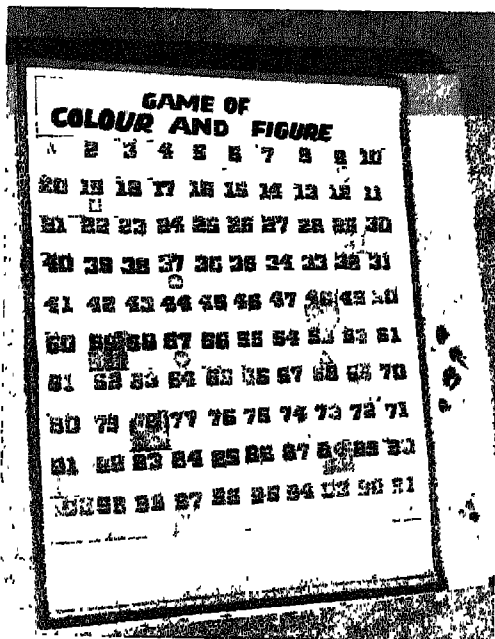 GAME OF
COLOUR AND FIGURE
2 3 4 5 6 7 8 9 10
20 19 18 17 16 15 14 13 12 11
21 22 23 24 25 26 27 28 29 30
40 39 38 37 36 35 34 33 32 31
41 42 43 44 45 46 47 48 49 50
60 59 58 57 56 55 54 53 52 51
61 62 63 64 65 66 67 68 69 70
80 79 78 77 76 75 74 73 72 71
81 82 83 84 85 86 87 88 89 90
99 98 97 96 95 94 93 92 91